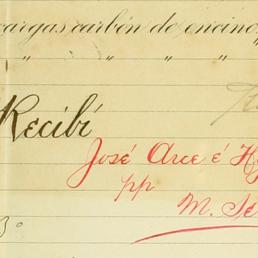 cargas carbón de encino
" " " " "
Recibí
José Arce é H
pp
M. Se
3º